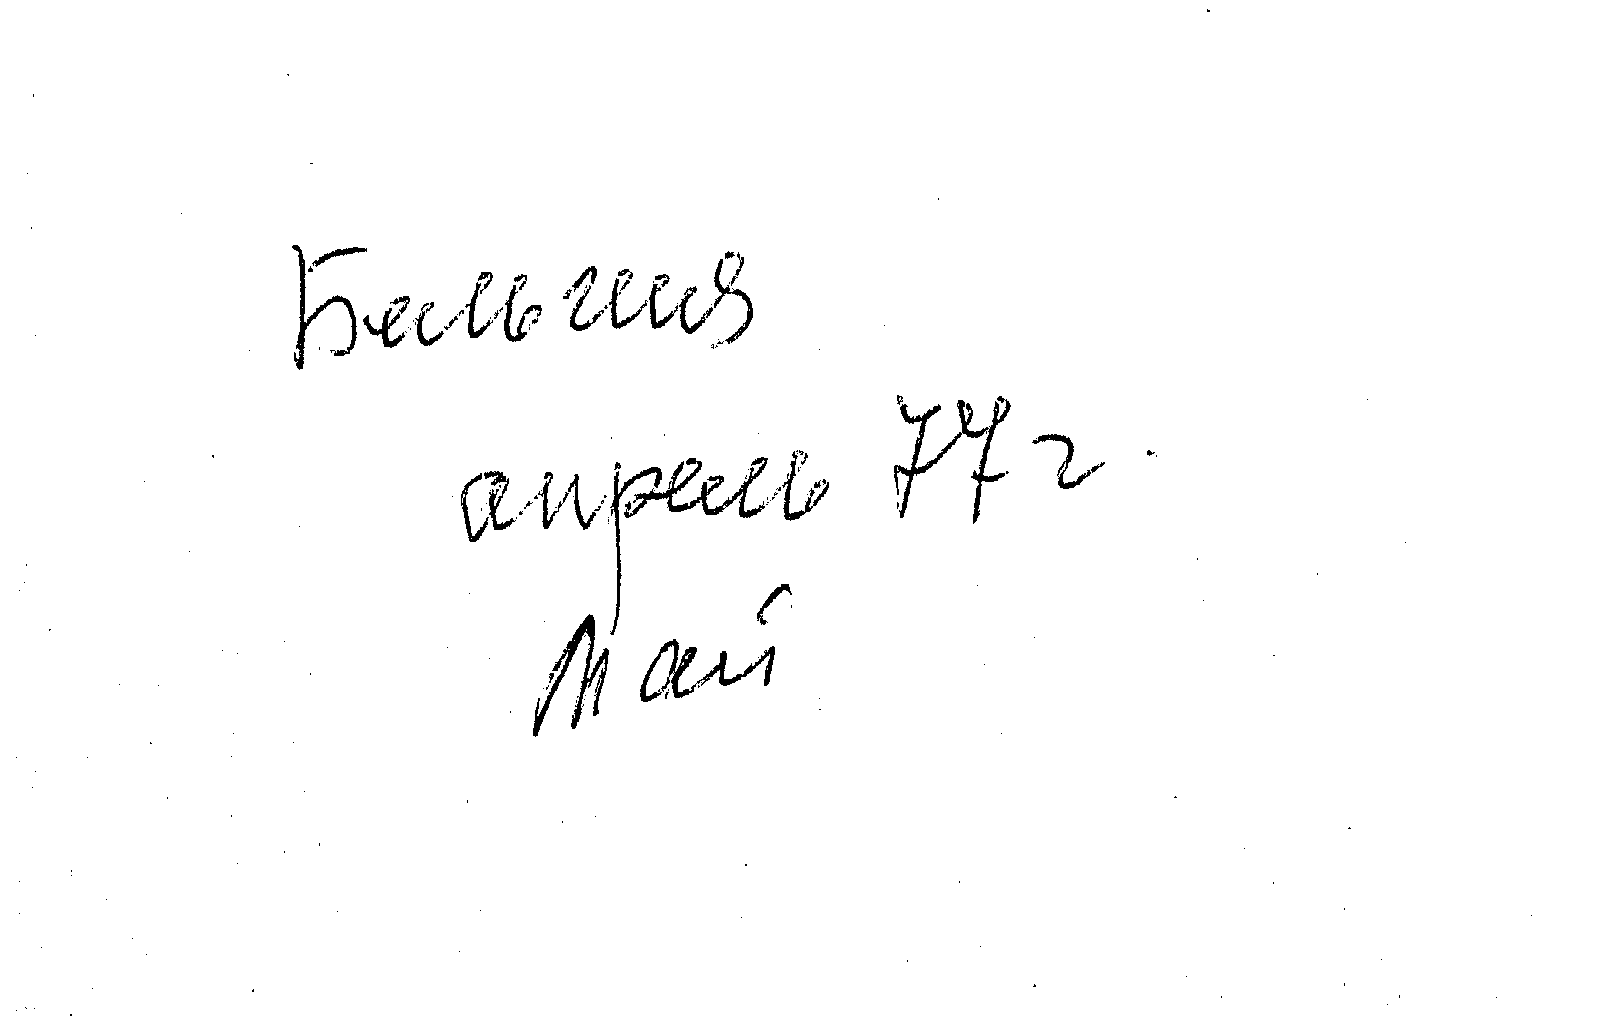 Бельгия
апрель 77 г.
Май